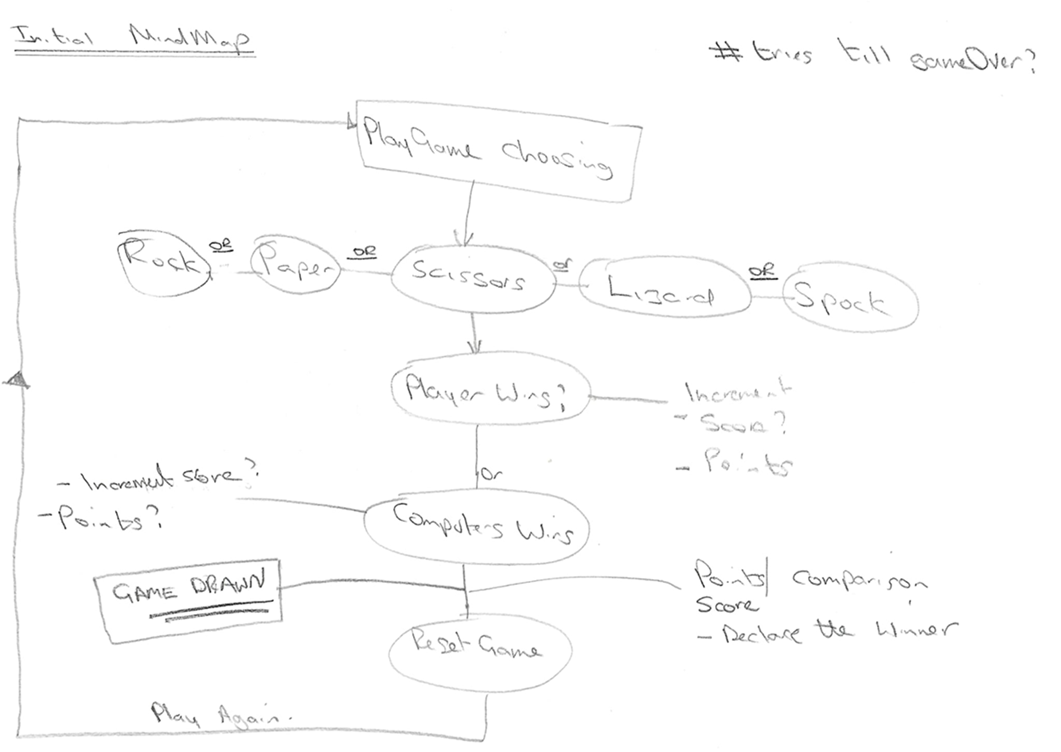 Initial MindMap
# tries till gameOver?
PlayGame choosing
Rock OR Paper OR Scissors or Lizard OR Spock
Player Wins?
Increment
- Score?
- Points
Or
- Increment score?
- Points?
Computers Wins
GAME DRAWN
Points/ Comparison
Score
- Declare the Winner
Reset Game
Play Again.